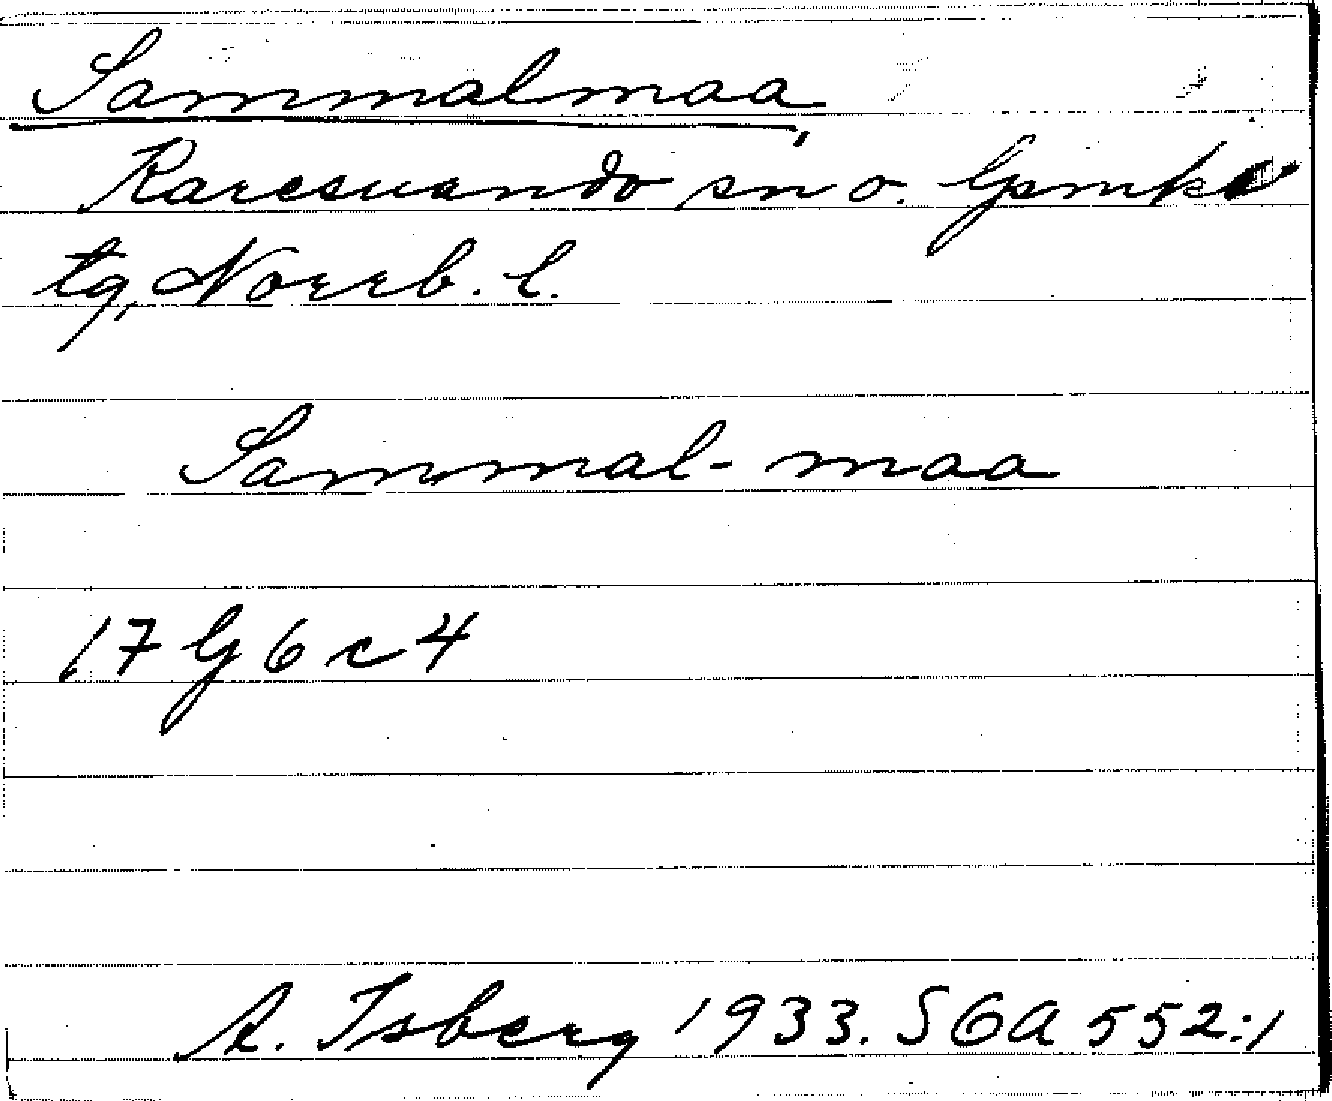 Sammalmaa,
Karesuando sn o. lpmks
tg, Norrb. l.
Sammal-maa
17 G 6 c 4
A. Isberg 1933. SGA 552:1